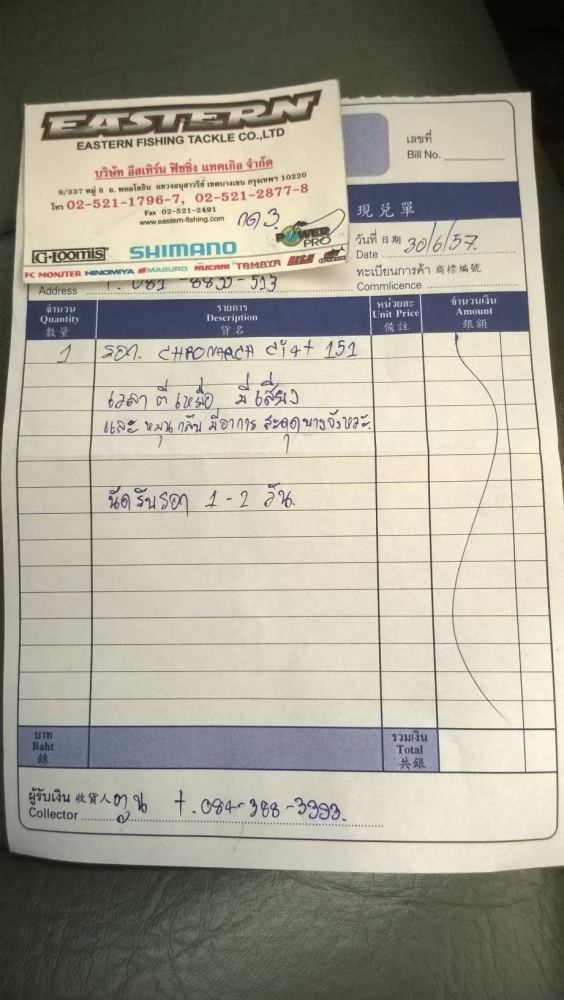 EASTERN
EASTERN FISHING TACKLE CO.,LTD
บริษัท อีสเทิร์น ฟิชชิ่ง แทคเกิล จำกัด
9/337 หมู่ 8 ถ. พหลโยธิน แขวงอนุสาวรีย์ เขตบางเขน กรุงเทพฯ 10220
โทร 02-521-1796-7, 02-521-2877-8
Fax 02-521-2491
www.eastern-fishing.com
กด 3.
POWER PRO
G-Loomis SHIMANO
FC MONSTER HINOMIYA MAGURO NUCARI TAMAYA
เลขที่
Bill No.
現兌單
วันที่ 日期 30/6/57.
Date
ทะเบียนการค้า 商標編號
Commlicence
Address
จำนวน รายการ หน่วยละ จำนวนเงิน
Quantity Description Unit Price Amount
數量 貨名 備註 銀額
1 รอก. CHRONARCH Ci4+ 151
เวลา ตี เหยื่อ มี เสียง
และ หมุน กลับ มีอาการ สะดุด บางจังหวะ.
นัด รับรอก 1 - 2 วัน.
บาท รวมเงิน
Baht Total
錸 共銀
ผู้รับเงิน 收貨人 ตูน
Collector